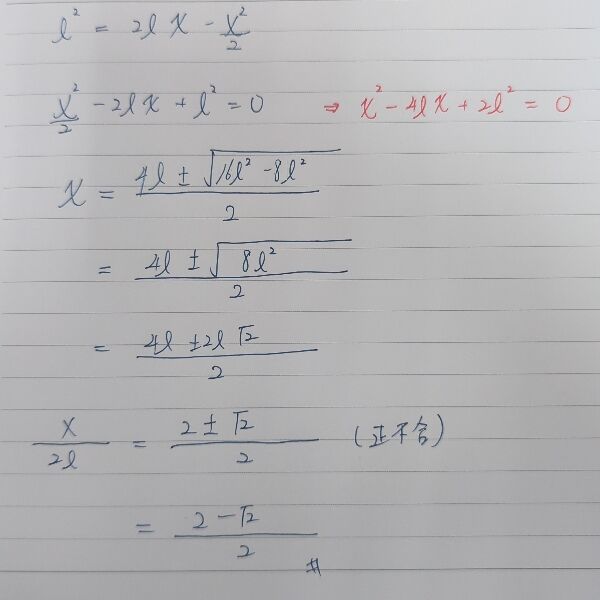 l² = 2lx - x²/2
x²/2 - 2lx + l² = 0 ⇒ x² - 4lx + 2l² = 0
x = (4l ± √(16l² - 8l²))/2
= (4l ± √(8l²))/2
= (4l ± 2l√2)/2
x/2l = (2 ± √2)/2 (正不合)
= (2 - √2)/2 #